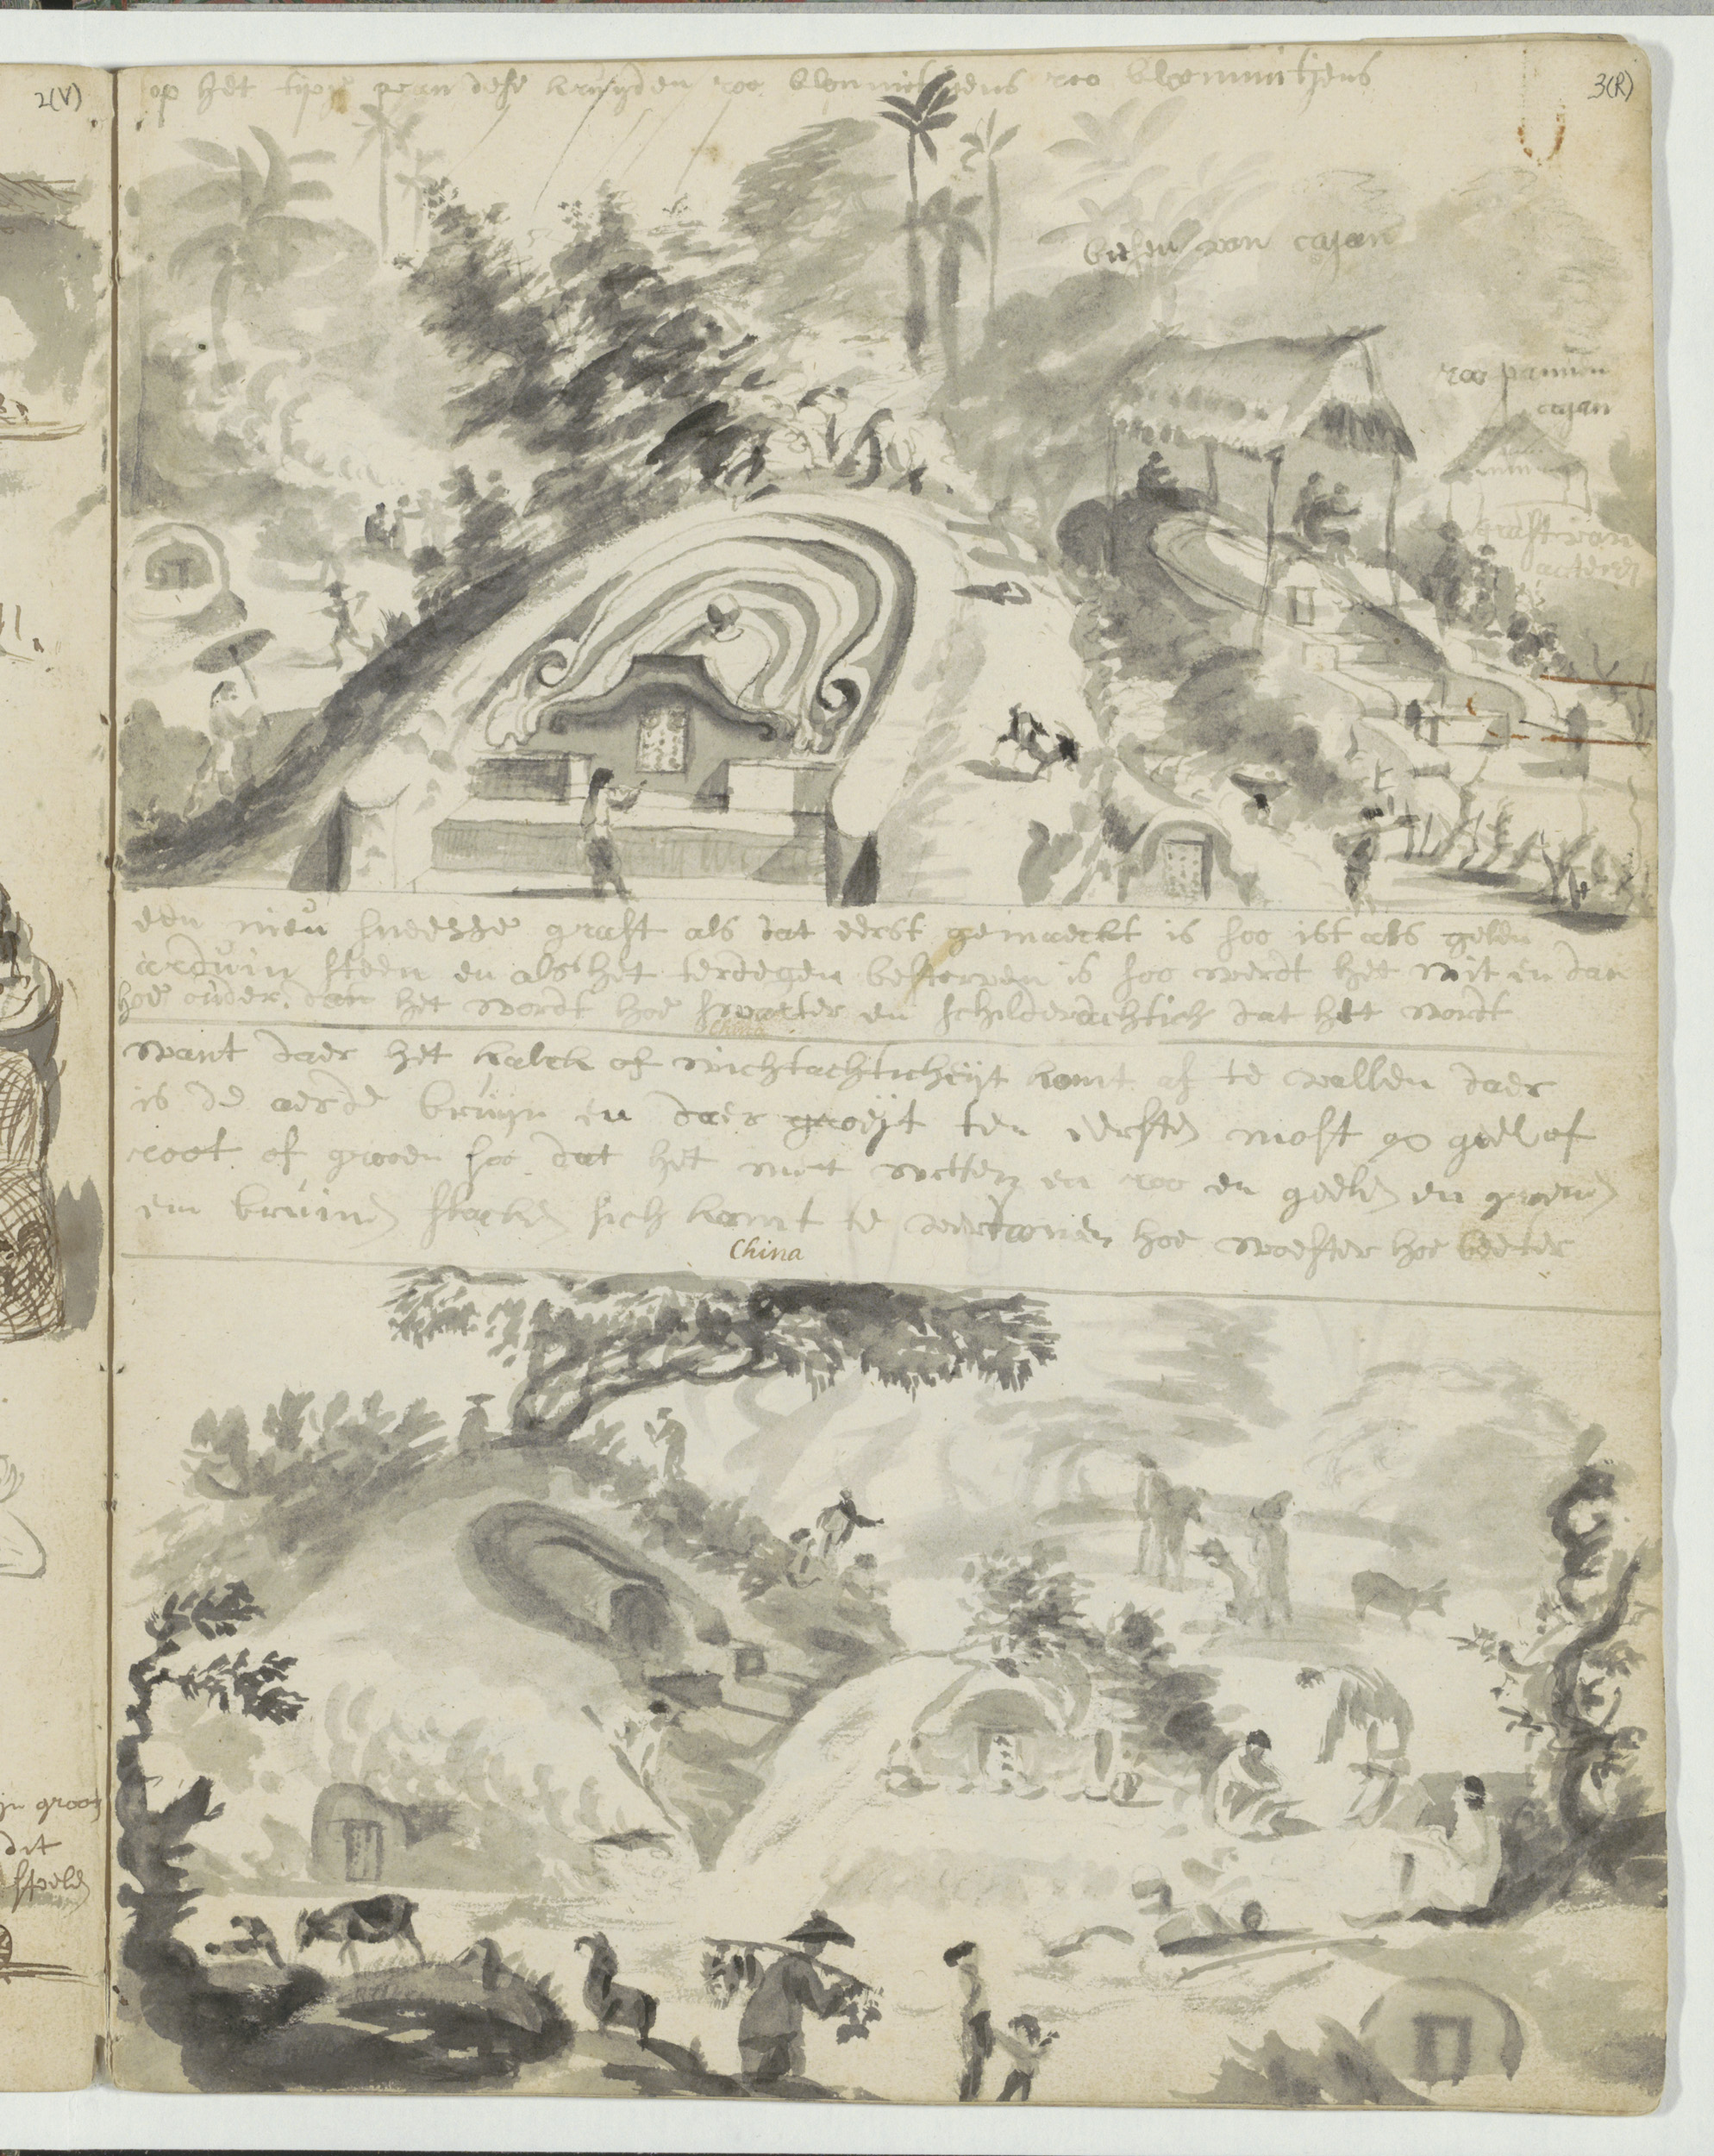 2(V)
3(R)
op het tipie van dese kruijden roo blommetijens roo blommitjens
biesen van cajan
roo pannen
cajan
graft van
een nieu sneesse graft als dat eerst gemaeckt is soo ist als gelen
arduin steen en als het terdegen bestorven is soo werdt het wit en dan
hoe ouder dan het wordt hoe swarter en schilderachtich dat het wordt
China
want daer het kalck of wichtachticheijt komt af te vallen daer
is de aerde bruijn en daer groeijt ten eersten most op geel of
root of groen soo dat het met witten en roo en geelen en groenen
en bruinen placken sich komt te vertoonen hoe woester hoe beeter
China
groot
dit